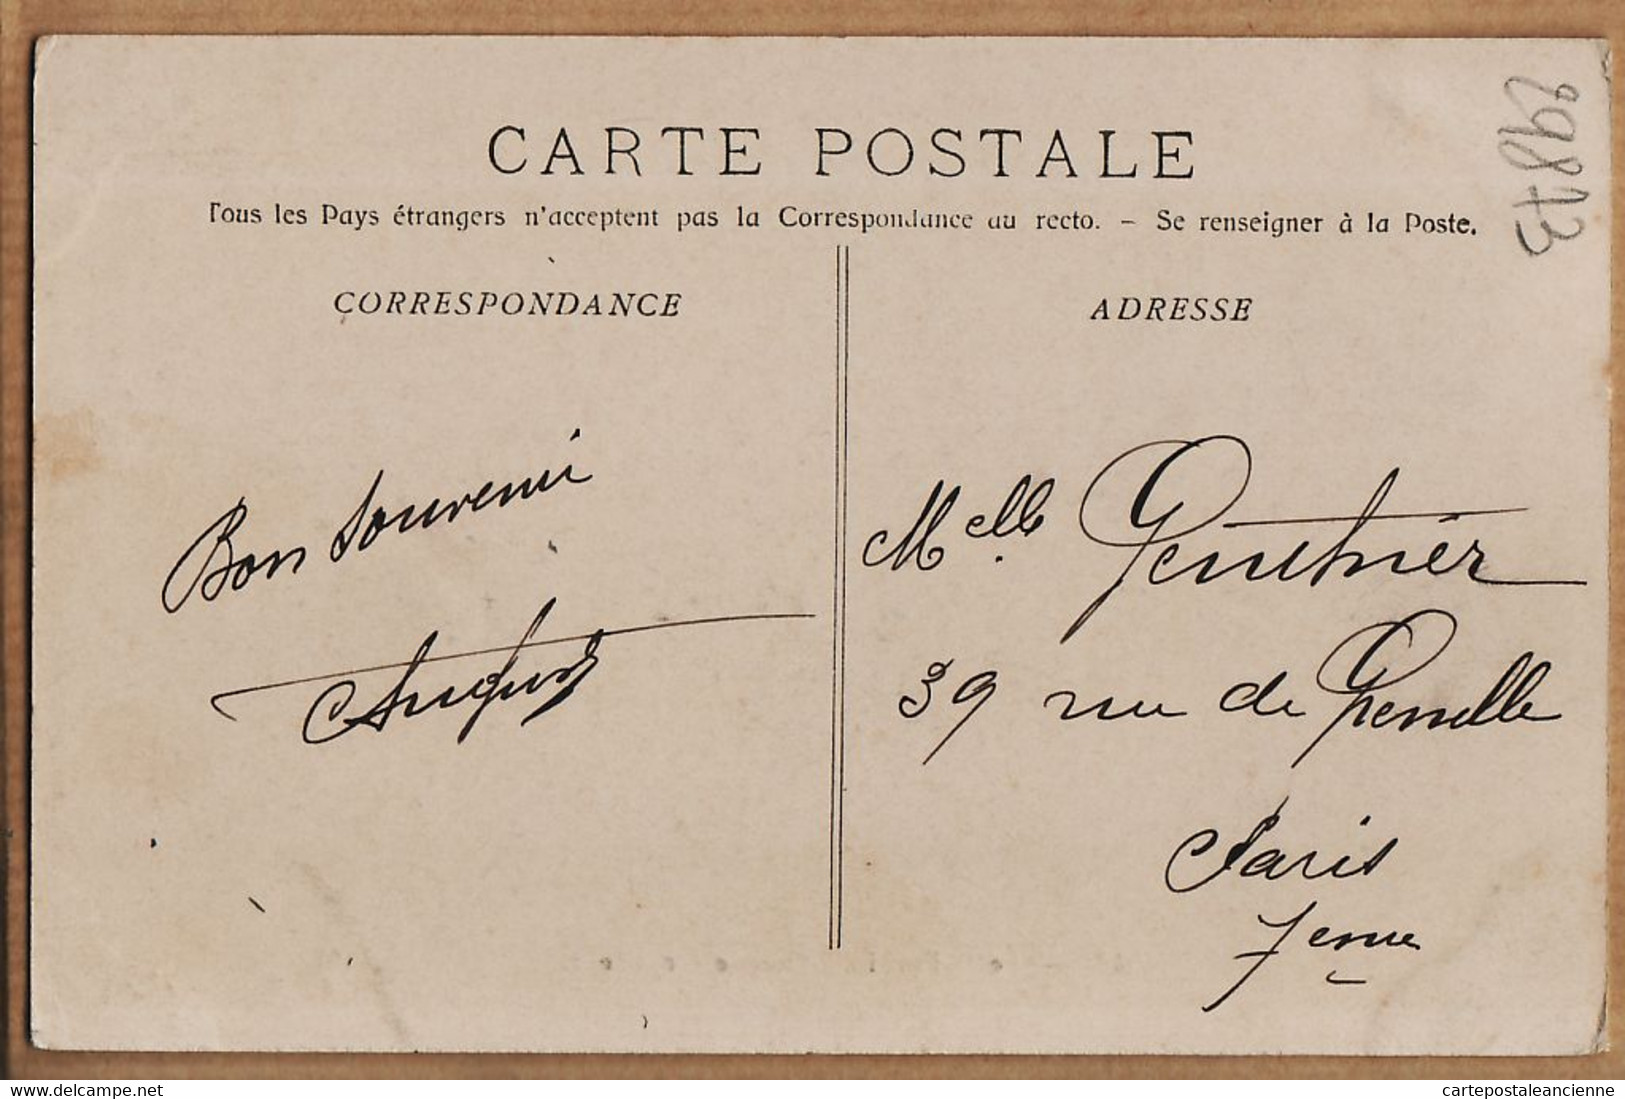 CARTE POSTALE
Tous les Pays étrangers n'acceptent pas la Correspondance au recto. - Se renseigner à la Poste.
CORRESPONDANCE
ADRESSE
29873
Bon Souvenir
Melle
39 rue de Grenelle
Paris
7eme
delcampe.net
cartepostaleancienne